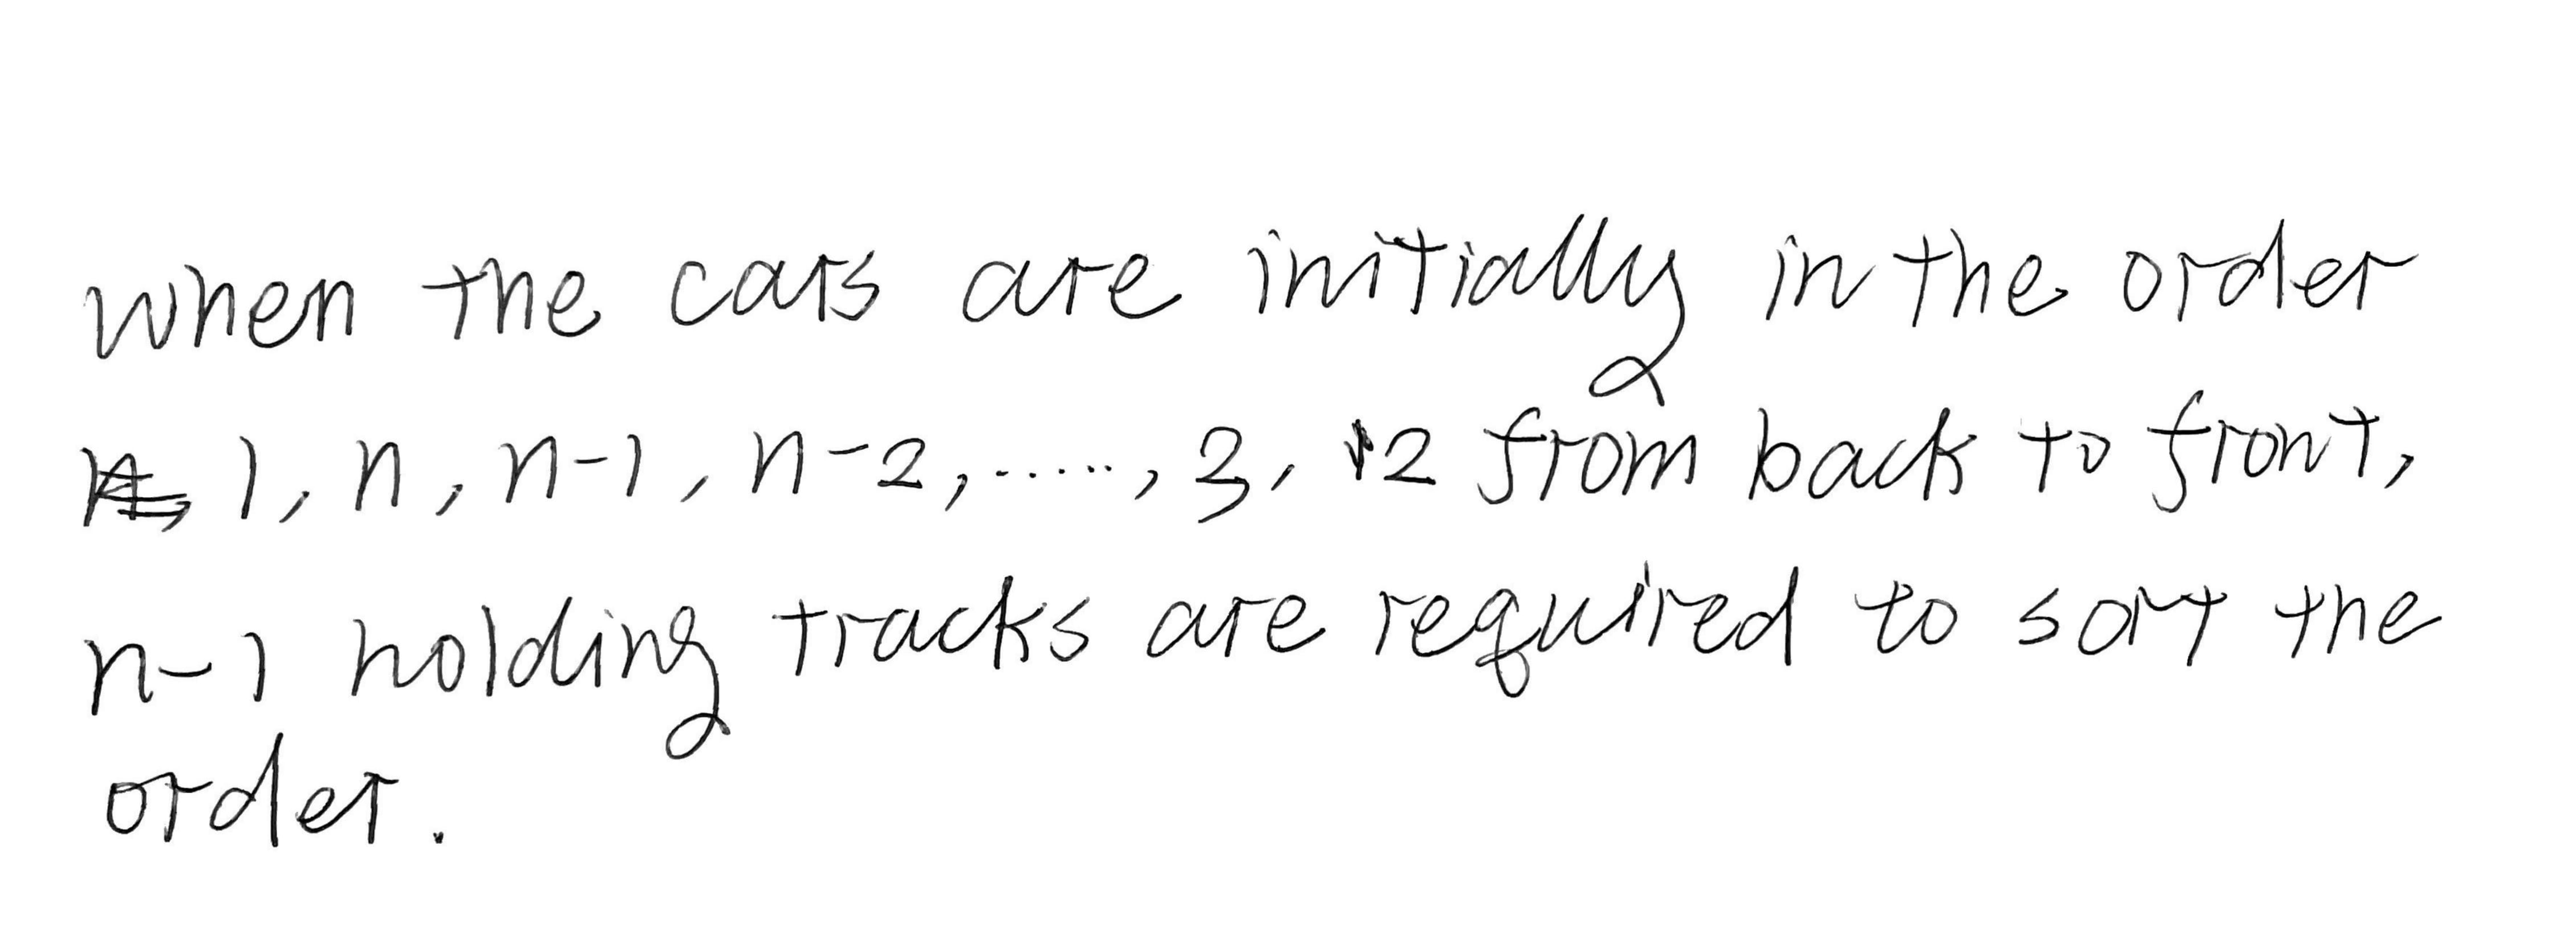 when the cars are initially in the order
1, n, n-1, n-2, ......, 3, 2 from back to front,
n-1 holding tracks are required to sort the
order.